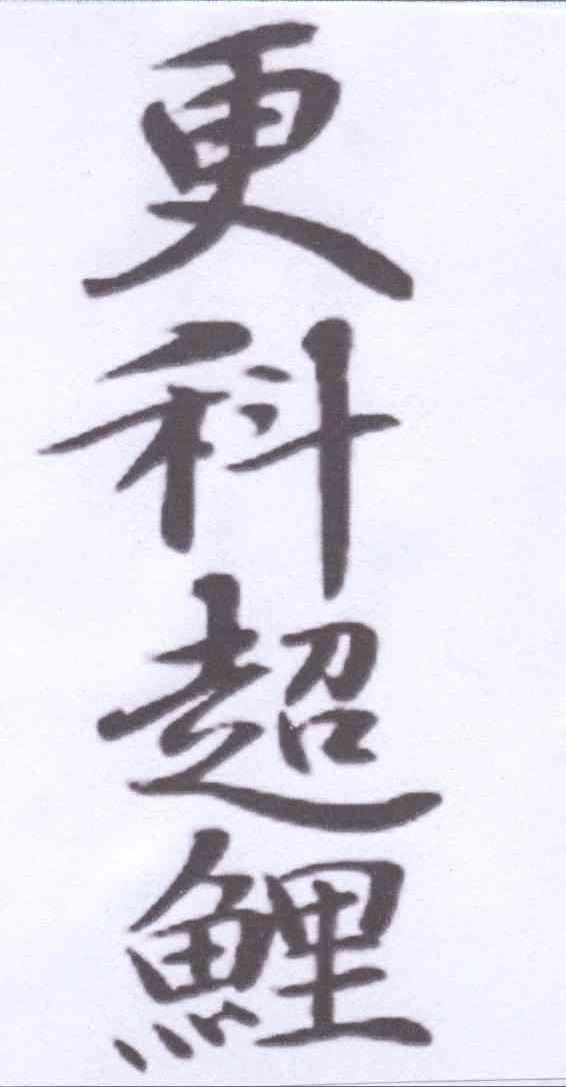 更科超鯉